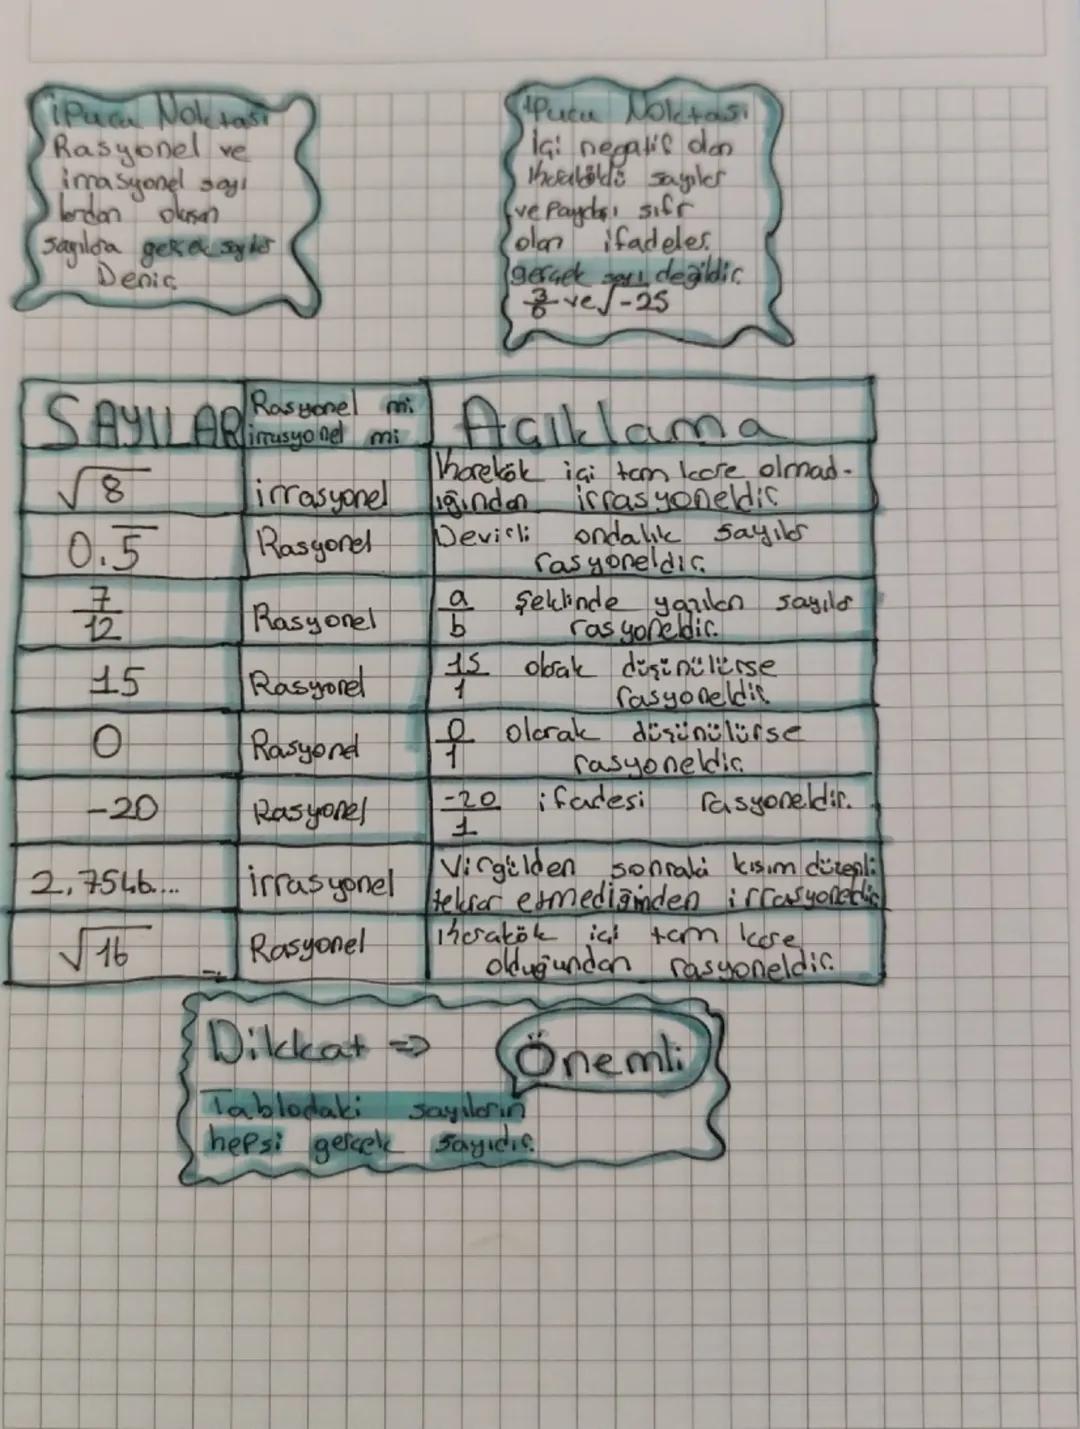 İpucu Noktası
Rasyonel ve
irrasyonel sayı
lardan oluşan
sayılara gerçek sayılar
Denir.
İpucu Noktası
İçi negatif olan
Kareköklü sayılar
ve Paydası sıfır
olan ifadeler.
gerçek sayı değildir.
3/0 ve √-25
SAYILAR
Rasyonel mi
irrasyonel mi
Açıklama
√8
irrasyonel
Karekök içi tam kare olmad-
ığından irrasyoneldir
0.5̅
Rasyonel
Devirli ondalık sayılar
rasyoneldir.
7/12
Rasyonel
a/b şeklinde yazılan sayılar
rasyoneldir.
15
Rasyonel
15/1 olarak düşünülürse
rasyoneldir
0
Rasyonel
0/1 olarak düşünülürse
rasyoneldir.
-20
Rasyonel
-20/1 ifadesi rasyoneldir.
2,7546...
irrasyonel
Virgülden sonraki kısım düzenli
tekrar etmediğinden irrasyoneldir
√16
Rasyonel
Karekök içi tam kare
olduğundan rasyoneldir.
Dikkat ⇒ Önemli
Tablodaki sayıların
hepsi gerçek sayıdır.